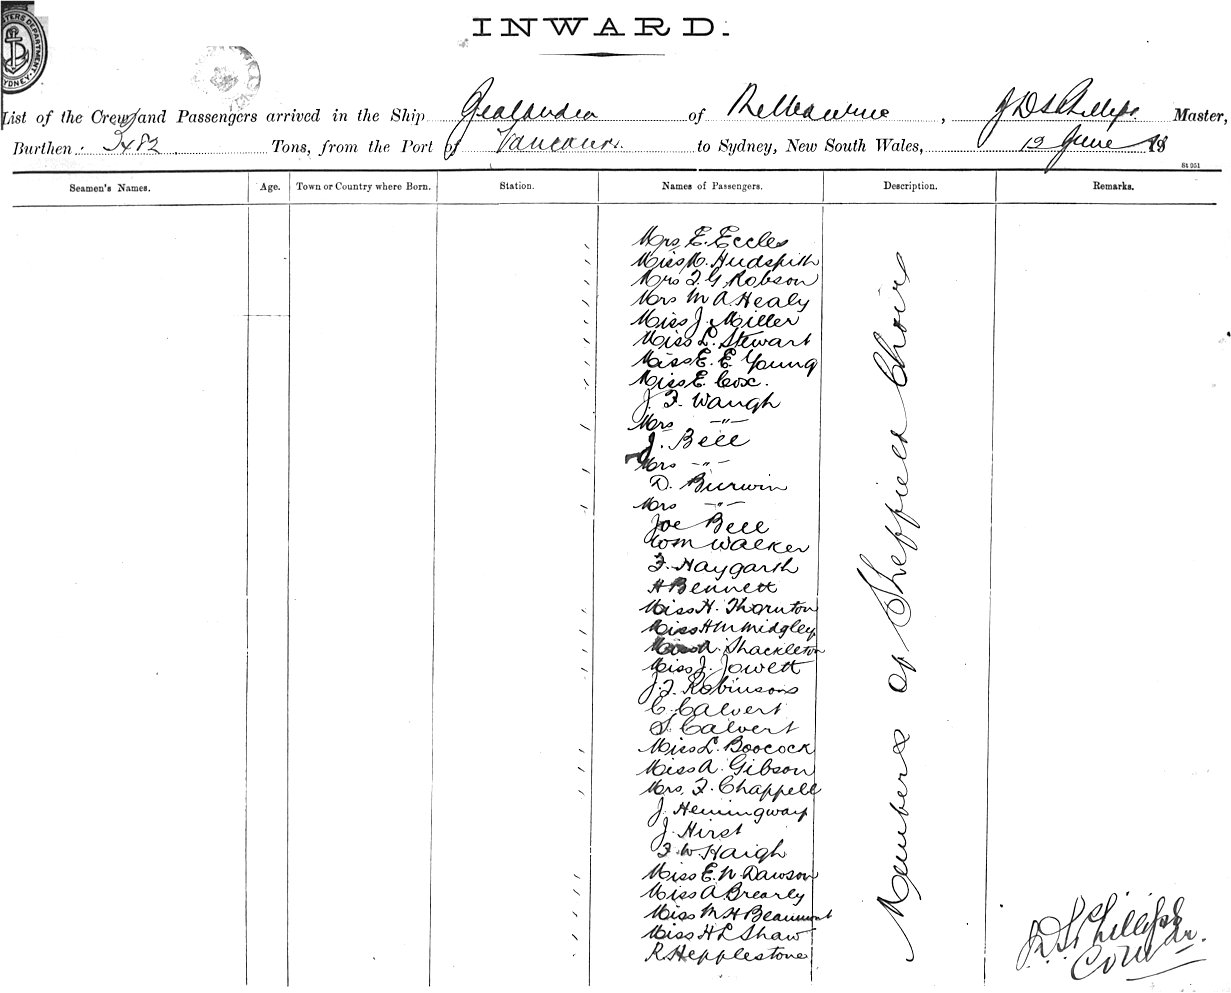 INWARD.
STERS DEPARTMENT
SYDNEY
List of the Crew and Passengers arrived in the Ship Zealandia of Melbourne, J D S Phillips Master,
Burthen 3482 Tons, from the Port of Vancouver to Sydney, New South Wales, 19 June 19
St 951
Seamen's Names. Age. Town or Country where Born. Station. Names of Passengers. Description. Remarks.
Mrs E. Eccles
Miss M. Hudspith
Mrs F. G. Robson
Mrs M A Healy
Miss J. Miller
Miss L. Stewart
Miss E. E. Young
Miss E. Cox.
J. F. Waugh
Mrs -"-
J. Bell
Mrs -"-
D. Burwin
Mrs -"-
Joe Bell
Wm Walker
F. Haygarth
H Bennett
Miss H. Thornton
Miss H M Midgley
Miss A. Shackleton
Miss J. Jowett
J. F. Robinsons
C. Calvert
S. Calvert
Miss L. Boocock
Miss A. Gibson
Mrs. F. Chappell
J. Hemingway
J. Hirst
F. W. Haigh
Miss E. N. Dawson
Miss A Brearly
Miss M H Beaumont
Miss H L Shaw
R. Hepplestone
Members of Sheffield Choir
J. D. S. Phillips
Comdr.